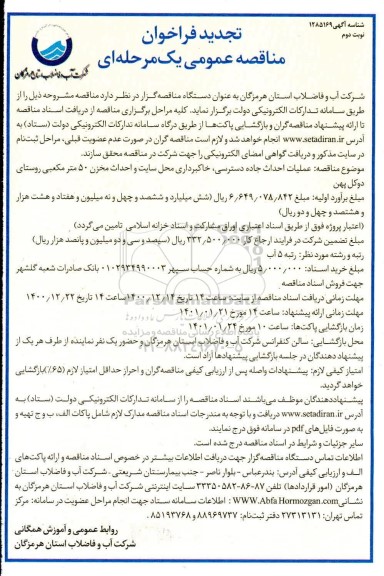 شناسه آگهی ۱۲۸۵۱۶۹
نوبت دوم
تجدید فراخوان
مناقصه عمومی یک‌مرحله‌ای
شرکت آب و فاضلاب استان هرمزگان
شرکت آب و فاضلاب استان هرمزگان به عنوان دستگاه مناقصه‌گزار در نظر دارد مناقصه مشروحه ذیل را از
طریق سامانه تدارکات الکترونیکی دولت برگزار نماید. کلیه مراحل برگزاری مناقصه از دریافت اسناد مناقصه
تا ارائه پیشنهاد مناقصه‌گران و بازگشایی پاکت‌ها از طریق درگاه سامانه تدارکات الکترونیکی دولت (ستاد) به
آدرس www.setadiran.ir انجام خواهد شد و لازم است مناقصه گران در صورت عدم عضویت قبلی، مراحل ثبت‌نام
در سایت مذکور و دریافت گواهی امضای الکترونیکی را جهت شرکت در مناقصه محقق سازند.
موضوع مناقصه: عملیات احداث جاده دسترسی، خاکبرداری محل سایت و احداث مخزن ۵۰ متر مکعبی روستای
دوکل پهن
مبلغ برآورد اولیه: مبلغ ۶,۶۴۹,۰۷۸,۸۴۲ ریال (شش میلیارد و ششصد و چهل و نه میلیون و هفتاد و هشت هزار
و هشتصد و چهل و دو ریال)
(اعتبار پروژه فوق از طریق اسناد اعتباری اوراق مشارکت و اسناد خزانه اسلامی تامین می‌گردد)
مبلغ تضمین شرکت در فرایند ارجاع کار: ۳۳۲,۵۰۰,۰۰۰ ریال (سیصد و سی و دو میلیون و پانصد هزار ریال)
رتبه و رشته مورد نظر: رتبه ۵ آب
مبلغ خرید اسناد: ۵,۰۰۰,۰۰۰ ریال به شماره حساب سپهر ۰۱۰۲۹۳۴۹۹۰۰۰۳ بانک صادرات شعبه گلشهر
جهت فروش اسناد مناقصه
مهلت زمانی دریافت اسناد مناقصه از سایت: ساعت ۱۴ تاریخ ۱۴۰۰,۱۲,۱۴ تا ساعت ۱۴ تاریخ ۱۴۰۰,۱۲,۲۲
مهلت زمانی ارائه پیشنهاد: ساعت ۱۴ مورخ ۱۴۰۱,۰۱,۲۱
زمان بازگشایی پاکت‌ها: ساعت ۱۰ مورخ ۱۴۰۱,۰۱,۲۴
محل بازگشایی: سالن کنفرانس شرکت آب و فاضلاب استان هرمزگان و حضور یک نفر نماینده از طرف هر یک از
پیشنهاد دهندگان در جلسه بازگشایی پیشنهادها آزاد است.
امتیاز کیفی لازم: پیشنهادات واصله پس از ارزیابی کیفی مناقصه‌گران و احراز حداقل امتیاز لازم (۶۵٪) بازگشایی
خواهد گردید.
پیشنهاددهندگان موظف می‌باشند اسناد مناقصه را از سامانه تدارکات الکترونیکی دولت (ستاد) به
آدرس www.setadiran.ir دریافت و با توجه به مندرجات اسناد مناقصه مدارک لازم شامل پاکات الف، ب و ج تهیه و
به صورت فایل‌های pdf در سامانه فوق درج نمایند.
سایر جزئیات و شرایط در اسناد مناقصه درج شده است.
اطلاعات تماس دستگاه مناقصه‌گزار جهت دریافت اطلاعات بیشتر در خصوص اسناد مناقصه و ارائه پاکت‌های
الف و ارزیابی کیفی آدرس: بندرعباس - بلوار ناصر - جنب بیمارستان شریعتی، شرکت آب و فاضلاب استان
هرمزگان (امور قراردادها) تلفن ۸۷-۸۶-۳۳۳۵۰۵۸۲ سایت اینترنتی شرکت آب و فاضلاب استان هرمزگان به
نشانی: WWW.Abfa Hormozgan.com اطلاعات سامانه ستاد جهت انجام مراحل عضویت در سامانه: مرکز
تماس تهران: ۲۷۳۱۳۱۳۱ دفتر ثبت‌نام: ۸۸۹۶۹۷۳۷ و ۸۵۱۹۳۷۶۸.
روابط عمومی و آموزش همگانی
شرکت آب و فاضلاب استان هرمزگان